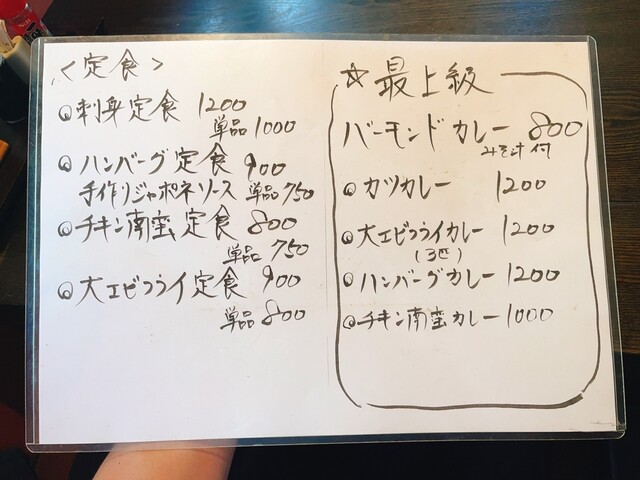 <定食>
◎刺身定食 1200
単品1000
◎ハンバーグ定食 900
手作りジャポネソース 単品750
◎チキン南蛮定食 800
単品750
◎大エビフライ定食 900
単品800
☆最上級
バーモンドカレー 800
みそ汁付
◎カツカレー 1200
◎大エビフライカレー 1200
(3匹)
◎ハンバーグカレー 1200
◎チキン南蛮カレー 1000